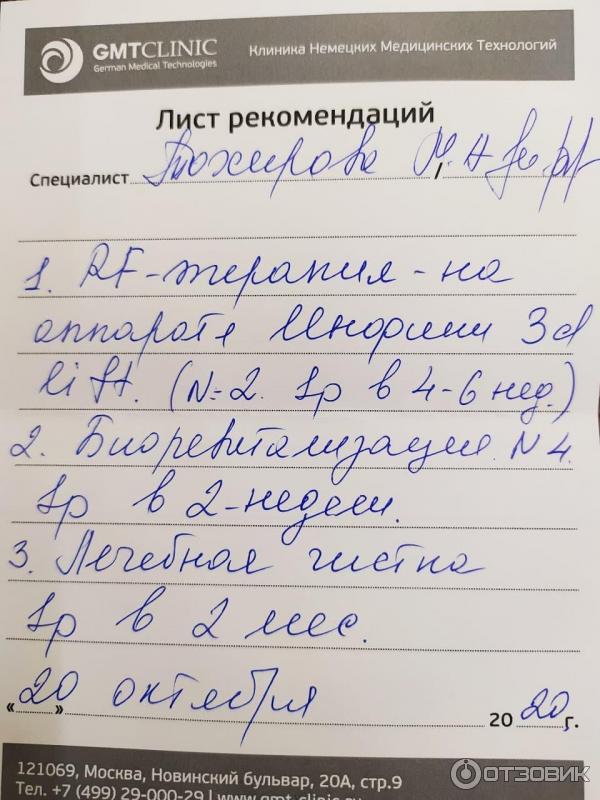 GMTCLINIC
German Medical Technologies
Клиника Немецких Медицинских Технологий
Лист рекомендаций
Специалист Тохирова М. А
1. RF-терапия - на
аппарате Инфини 3d
lift. (N=2. 1р в 4-6 нед.)
2. Биоревитализация. N 4.
1р в 2-недели.
3. Лечебная чистка
1р в 2 мес.
«20» октября 2020 г.
121069, Москва, Новинский бульвар, 20А, стр.9
Тел. +7 (499) 29-000-29 | www.gmt-clinic.ru
ОТЗОВИК